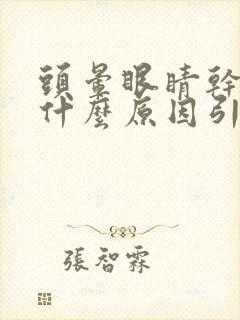 頭暈眼睛幹
什麼原因引
張智霖